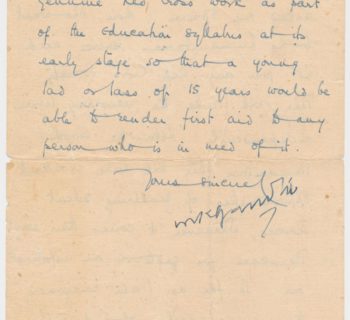 genuine Red Cross work as part
of the education syllabus at its
early stage so that a young
lad or lass of 15 years would be
able to render first aid to any
person who is in need of it.
Yours sincerely
mkgandhi